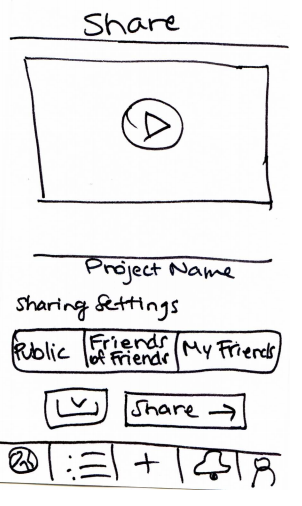 Share
Project Name
Sharing Settings
Public
Friends
of Friends
My Friends
Share →